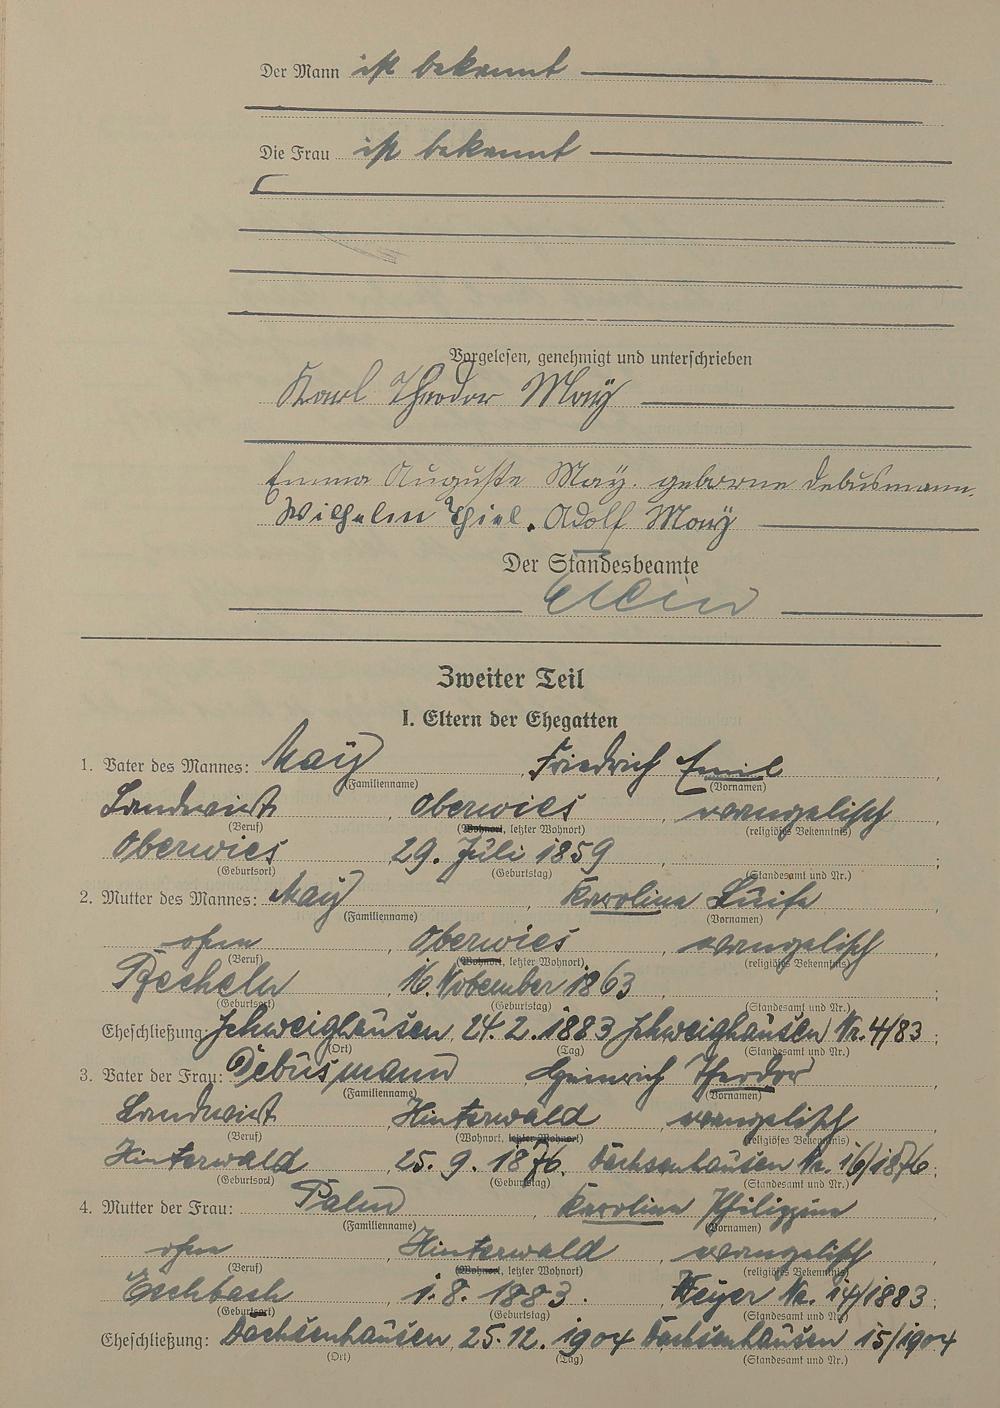 Der Mann ist bekannt
Die Frau ist bekannt
Vorgelesen, genehmigt und unterschrieben
Karl Theodor Maÿ
Emma Auguste Maÿ. geborne Debusmann.
Wilhelm Thiel. Adolf Maÿ
Der Standesbeamte
Zweiter Teil
I. Eltern der Ehegatten
1. Vater des Mannes: Maÿ, Friedrich Emil,
(Familienname) (Vornamen)
Landwirt, Oberwies, evangelisch
(Beruf) (Wohnort, letzter Wohnort) (religiöses Bekenntnis)
Oberwies, 29. Juli 1859, ;
(Geburtsort) (Geburtstag) (Standesamt und Nr.)
2. Mutter des Mannes: Maÿ, Karoline Luise,
(Familienname) (Vornamen)
ohne, Oberwies, evangelisch
(Beruf) (Wohnort, letzter Wohnort) (religiöses Bekenntnis)
Becheln, 16. November 1863, ;
(Geburtsort) (Geburtstag) (Standesamt und Nr.)
Eheschließung: Schweighausen, 24.2.1883 Schweighausen Nr. 4/83;
(Ort) (Tag) (Standesamt und Nr.)
3. Vater der Frau: Debusmann, Heinrich Theodor,
(Familienname) (Vornamen)
Landwirt, Hinterwald, evangelisch
(Beruf) (Wohnort, letzter Wohnort) (religiöses Bekenntnis)
Hinterwald, 25. 9. 1876. Dachsenhausen Nr. 16/1876;
(Geburtsort) (Geburtstag) (Standesamt und Nr.)
4. Mutter der Frau: Palm, Karoline Philippine,
(Familienname) (Vornamen)
ohne, Hinterwald, evangelisch
(Beruf) (Wohnort, letzter Wohnort) (religiöses Bekenntnis)
Eschbach, 1. 8. 1883. Weyer Nr. 14/1883;
(Geburtsort) (Geburtstag) (Standesamt und Nr.)
Eheschließung: Dachsenhausen, 25.12.1904 Dachsenhausen 15/1904
(Ort) (Tag) (Standesamt und Nr.)